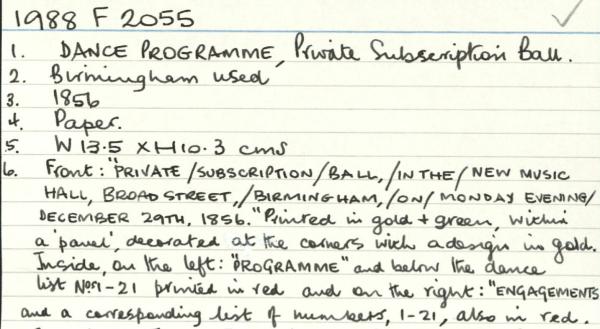 1988 F 2055
1. DANCE PROGRAMME, Private Subscription Ball.
2. Birmingham used
3. 1856
4. Paper.
5. W 13.5 X H 10.3 cms
6. Front: "PRIVATE/SUBSCRIPTION/BALL,/IN THE/NEW MUSIC
HALL, BROAD STREET,/BIRMINGHAM,/ON/MONDAY EVENING/
DECEMBER 29TH, 1856." Printed in gold + green, within
a 'panel', decorated at the corners with a design in gold.
Inside, on the left: "PROGRAMME" and below the dance
list Nos 1-21 printed in red and on the right: "ENGAGEMENTS
and a corresponding list of numbers, 1-21, also in red.